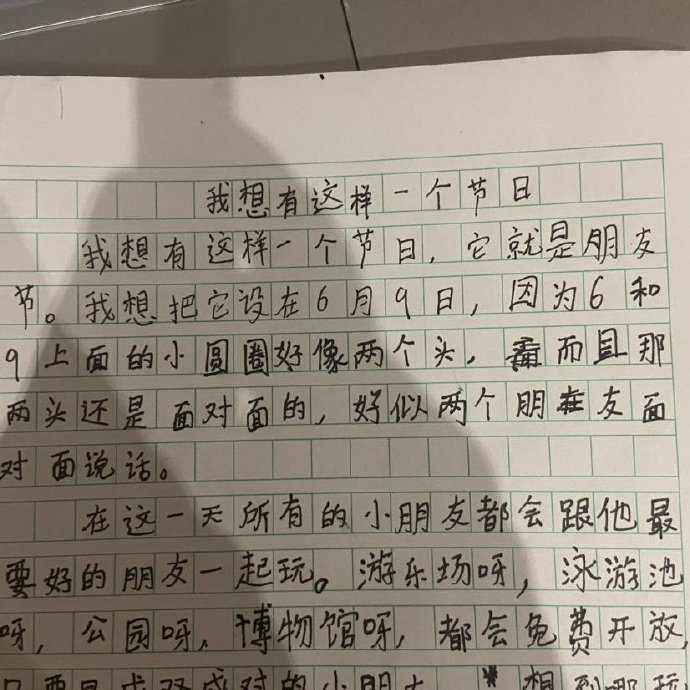 我想有这样一个节日
我想有这样一个节日,它就是朋友
节。我想把它设在6月9日,因为6和
9上面的小圆圈好像两个头,而且那
两头还是面对面的,好似两个朋友面
对面说话。
在这一天所有的小朋友都会跟他最
要好的朋友一起玩。游乐场呀,泳游池
呀,公园呀,博物馆呀,都会免费开放,
只要是成双成对的小朋友 想到那玩